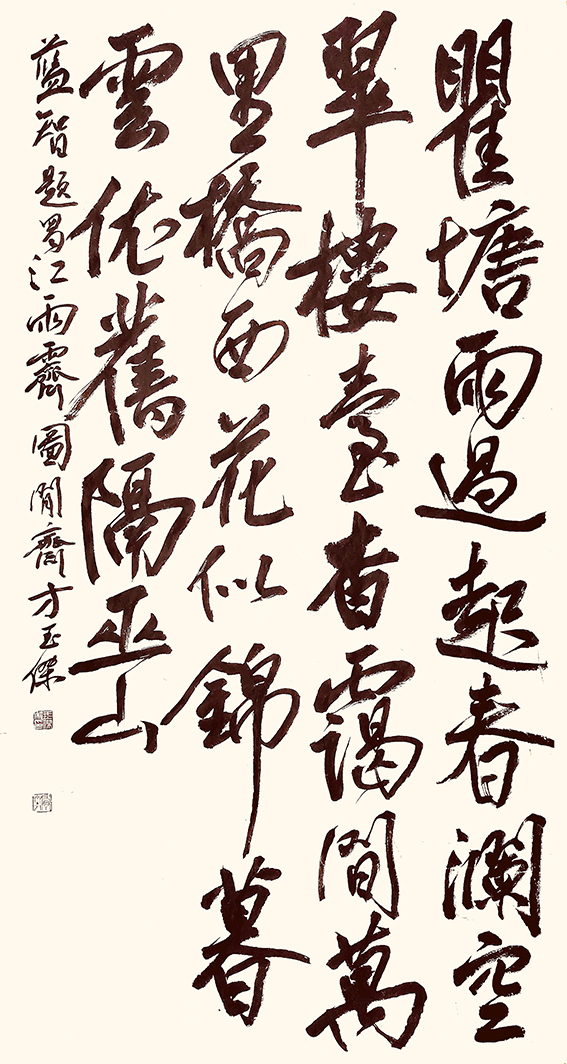 瞿塘雨過起春瀾空
翠樓臺杳靄間萬
里橋西花似錦暮
雲依舊隔巫山
藍智題蜀江雨霽圖閒齋方玉傑